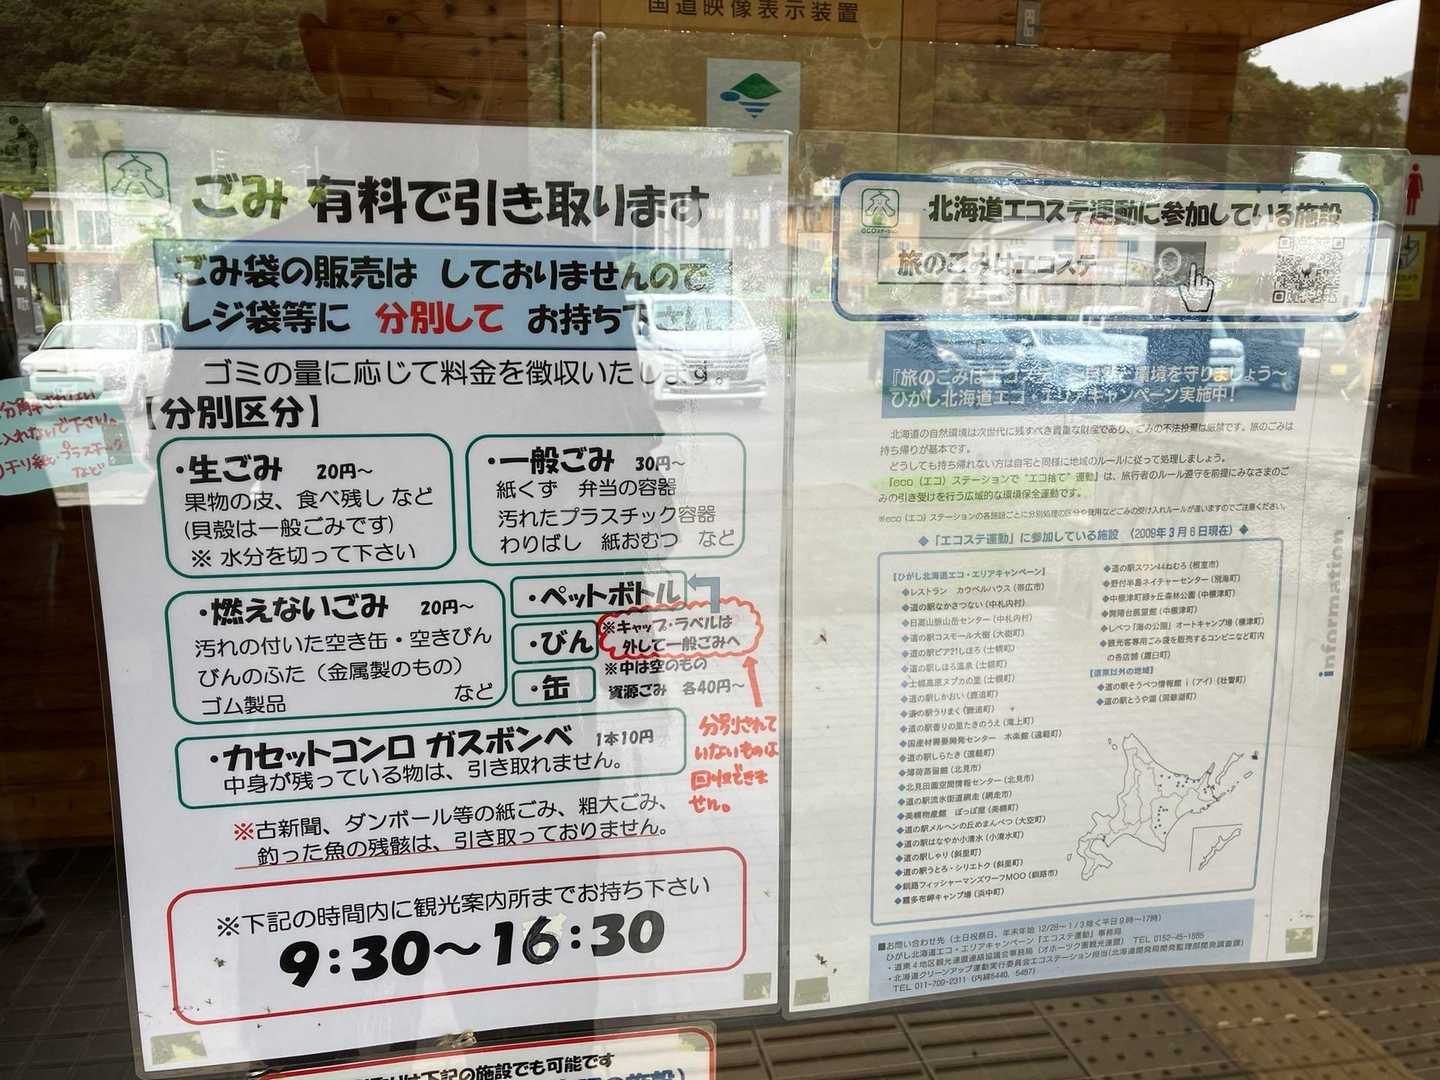 国道映像表示装置
ごみ 有料で引き取ります
ごみ袋の販売は しておりませんので
レジ袋等に 分別して お持ち下さい
ゴミの量に応じて料金を徴収いたします。
【分別区分】
・生ごみ 20円～
果物の皮、食べ残し など
(貝殻は一般ごみです)
※ 水分を切って下さい
・一般ごみ 30円～
紙くず 弁当の容器
汚れたプラスチック容器
わりばし 紙おむつ など
・燃えないごみ 20円～
汚れの付いた空き缶・空きびん
びんのふた（金属製のもの）
ゴム製品 など
・ペットボトル
・びん
・缶
※キャップ・ラベルは
外して一般ごみへ
※中は空のもの
資源ごみ 各40円～
分別されて
いないものは
回収できま
せん。
・カセットコンロ ガスボンベ 1本10円
中身が残っている物は、引き取れません。
※古新聞、ダンボール等の紙ごみ、粗大ごみ、
釣った魚の残骸は、引き取っておりません。
※下記の時間内に観光案内所までお持ち下さい
9:30～16:30
入れないで下さい。
プラスチック
など
北海道エコステ運動に参加している施設
旅のごみはエコステ
『旅のごみはエコステ』 ～自然と環境を守りましょう～
ひがし北海道エコ・エリアキャンペーン実施中！
北海道の自然環境は次世代に残すべき貴重な財産であり、ごみの不法投棄は厳禁です。旅のごみは
持ち帰りが基本です。
どうしても持ち帰れない方は自宅と同様に地域のルールに従って処理しましょう。
『eco（エコ）ステーションで “エコ捨て” 運動』は、旅行者のルール遵守を前提にみなさまのご
みの引き受けを行う広域的な環境保全運動です。
※eco（エコ）ステーションの各施設ごとに分別処理の区分や費用などごみの受け入れルールが違いますのでご注意ください。
◆「エコステ運動」に参加している施設 （2009年3月6日現在）◆
【ひがし北海道エコ・エリアキャンペーン】
◆レストラン カウベルハウス（帯広市）
◆道の駅なかさつない（中札内村）
◆日高山脈山岳センター（中札内村）
◆道の駅コスモール大樹（大樹町）
◆道の駅ピア21しほろ（士幌町）
◆道の駅しほろ温泉（士幌町）
◆士幌高原ヌプカの里（士幌町）
◆道の駅しかおい（鹿追町）
◆道の駅うりまく（鹿追町）
◆道の駅香りの里たきのうえ（滝上町）
◆国産材需要開発センター 木楽館（遠軽町）
◆道の駅しらたき（遠軽町）
◆薄荷蒸留館（北見市）
◆北見田園空間情報センター（北見市）
◆道の駅流氷街道網走（網走市）
◆美幌物産館 ぽっぽ屋（美幌町）
◆道の駅メルヘンの丘めまんべつ（大空町）
◆道の駅はなやか小清水（小清水町）
◆道の駅しゃり（斜里町）
◆道の駅うとろ・シリエトク（斜里町）
◆釧路フィッシャーマンズワーフMOO（釧路市）
◆霧多布岬キャンプ場（浜中町）
◆道の駅スワン44ねむろ（根室市）
◆野付半島ネイチャーセンター（別海町）
◆中標津町緑ヶ丘森林公園（中標津町）
◆開陽台展望館（中標津町）
◆しべつ「海の公園」オートキャンプ場（標津町）
◆観光客専用ごみ袋を販売するコンビニなど町内
の各店舗（羅臼町）
【道東以外の地域】
◆道の駅そうべつ情報館 i（アイ）（壮瞥町）
◆道の駅とうや湖（洞爺湖町）
information
■お問い合わせ先（土日祝祭日、年末年始 12/28～1/3除く平日9時～17時）
ひがし北海道エコ・エリアキャンペーン『エコステ運動』事務局
・道東4地区観光連盟連絡協議会事務局（オホーツク圏観光連盟） TEL 0152-45-1885
・北海道クリーンアップ運動実行委員会エコステーション担当（北海道開発局開発監理部開発調査課）
TEL 011-709-2311（内線5440、5457）
下記の施設でも可能です